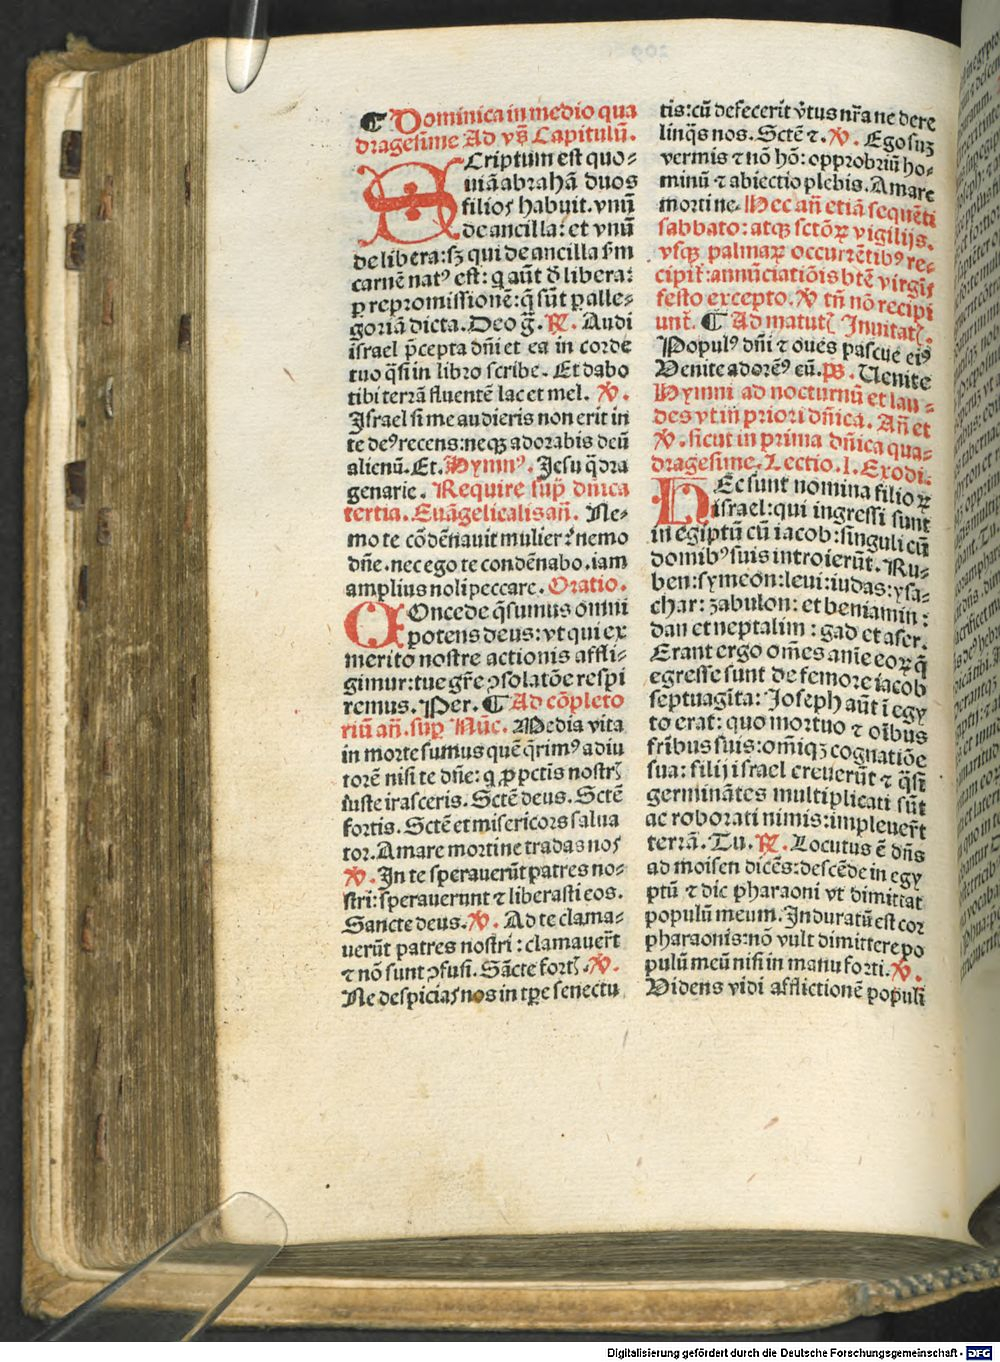 ¶ Dominica in medio qua
dragesime Ad vs̄ Capitulū.
SCriptum est quo-
niā abrahā duos
filios habuit. vnū
de ancilla: et vnū
de libera: sꝫ qui de ancilla s̄m
carnē natꝰ est: q aūt d̄ libera:
ꝑ repromissionē: q̄ sūt ꝑ alle-
goriā dicta. Deo g̅. ℟. Audi
israel p̄cepta dn̄i et ea in corde
tuo q̄si in libro scribe. Et dabo
tibi terrā fluentē lac et mel. ℣.
Israel si me audieris non erit in
te deꝰ recens: neqꝫ adorabis deū
alienū. Et. Hymnꝰ. Jesu q̄dra
genarie. Require sup̄ dn̄ica
tertia. Euāgelicalis an̄. Ne-
mo te cōdēnauit mulier? nemo
dn̄e. nec ego te condēnabo. iam
amplius noli peccare. Oratio.
COncede q̄sumus omni
potens deus: vt qui ex
merito nostre actionis affli-
gimur: tue gr̄e ꝯsolatōe respi
remus. Per. ¶ Ad cōpleto
riū an̄. sup̄ Nūc. Media vita
in morte sumus quē q̄rimꝰ adiu
torē nisi te dn̄e: q ꝓ pctīs nostrꝭ
iuste irasceris. Sctē deus. Sctē
fortis. Sctē et misericors salua
tor. Amare morti ne tradas nos
℣. In te sperauerūt patres no-
stri: sperauerunt ⁊ liberasti eos.
Sancte deus. ℣. Ad te clama-
uerūt patres nostri: clamauer̄t
⁊ nō sunt ꝯfusi. Sācte fortꝭ. ℣.
Ne despicias nos in tꝑe senectu
tis: cū defecerit v̓tus nr̄a ne dere
linq̄s nos. Sctē ⁊. ℣. Ego suꝫ
vermis ⁊ nō hō: opprobriū ho-
minū ⁊ abiectio plebis. Amare
morti ne. Hec an̄ etiā sequēti
sabbato: atqꝫ sctōꝝ vigilijs.
vsqꝫ palmaꝝ occurrētibꝰ re-
cipit̄: annūciatiōis btē virgīs
festo excepto. ℣ tn̄ nō recipi
unt̄. ¶ Ad matutꝭ Inuitatꝭ.
Populꝰ dn̄i ⁊ oues pascue eiꝰ
Venite adorēꝰ eū. ps̄. Uenite
Hymni ad nocturnū et lau-
des vt in priori dn̄ica. An̄ et
℣. sicut in prima dn̄ica qua-
dragesime. Lectio. I. Exodi.
HEc sunt nomina filioꝝ
israel: qui ingressi sunt
in egiptū cū iacob: singuli cū
domibꝰ suis introierūt. Ru-
ben: symeon: leui: iudas: ysa-
char: zabulon: et beniamin:
dan et neptalim: gad et aser.
Erant ergo om̄es anīe eoꝝ q̄
egresse sunt de femore iacob
septuagīta: Joseph aūt ī egy
to erat: quo mortuo ⁊ oībus
fr̄ibus suis: om̄iqꝫ cognatiōe
sua: filij israel creuerūt ⁊ q̄si
germināntes multiplicati sūt
ac roborati nimis: impleuer̄t
terrā. Tu. ℟. Locutus ē dn̄s
ad moisen dicēs: descēde in egy
ptū ⁊ dic pharaoni vt dimittat
populū meum. Induratū est cor
pharaonis: nō vult dimittere po
pulū meū nisi in manu forti. ℣.
Videns vidi afflictionē populi
Digitalisierung gefördert durch die Deutsche Forschungsgemeinschaft - DFG